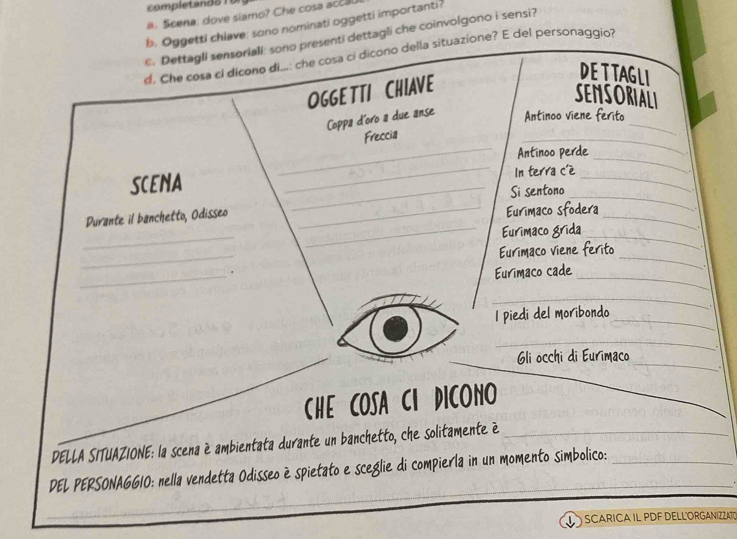 completando
a. Scena: dove siamo? Che cosa
b. Oggetti chiave: sono nominati oggetti importanti?
c. Dettagli sensoriali: sono presenti dettagli che coinvolgono i sensi?
d. Che cosa ci dicono di...: che cosa ci dicono della situazione? E del personaggio?
SCENA
Durante il banchetto, Odisseo
OGGETTI CHIAVE
Coppa d'oro a due anse
Freccia
DETTAGLI
SENSORIALI
Antinoo viene ferito
Antinoo perde
In terra c'è
Si sentono
Eurimaco sfodera
Eurimaco grida
Eurimaco viene ferito
Eurimaco cade
I piedi del moribondo
Gli occhi di Eurimaco
CHE COSA CI DICONO
DELLA SITUAZIONE: la scena è ambientata durante un banchetto, che solitamente è
DEL PERSONAGGIO: nella vendetta Odisseo è spietato e sceglie di compierla in un momento simbolico:
SCARICA IL PDF DELL'ORGANIZZATO